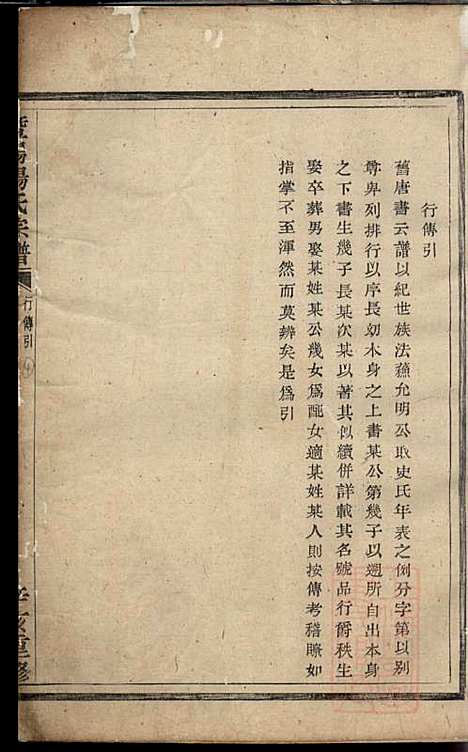 行傳引
舊唐書云譜以紀世族法蘓允明公取史氏年表之例分字第以別
尊卑列排行以序長幼木身之上書某公第幾子以遡所自出本身
之下書生幾子長某次某以著其似續併詳載其名號品行爵秩生
娶卒葬男娶某姓某公幾女為配女適某姓某人則按傳考稽瞭如
指掌不至渾然而莫辨矣是為引
陽楊氏宗譜
行傳引
亥重修